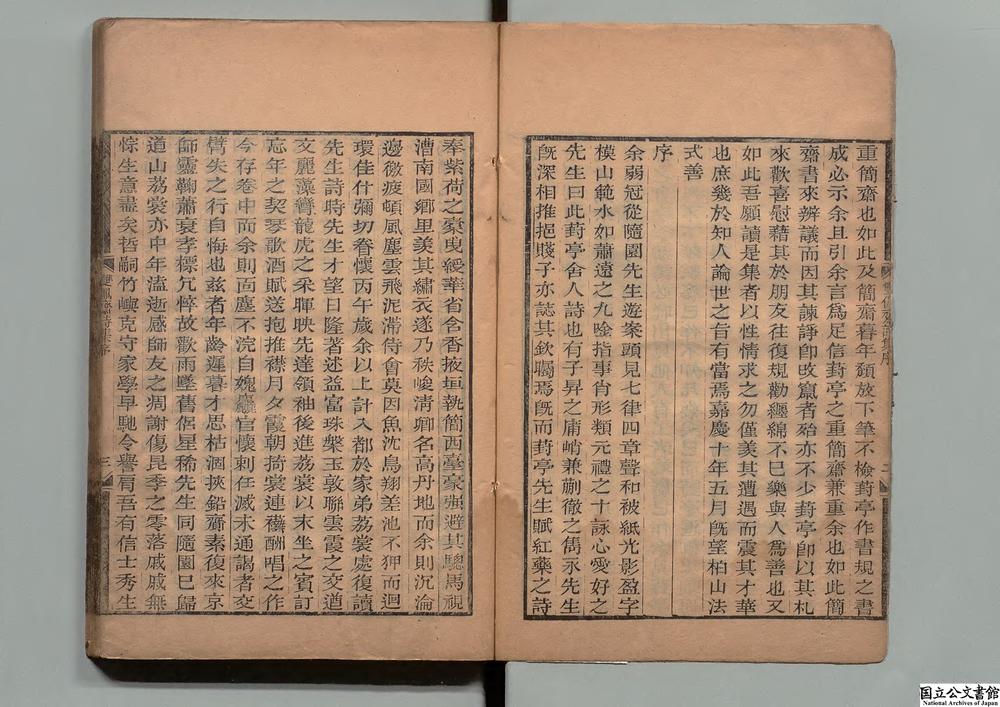 重簡齋也如此及簡齋暮年頽放下筆不檢葑亭作書規之書
成必示余且引余言爲足信葑亭之重簡齋兼重余也如此簡
齋書來辨議而因其諫諍卽改竄者殆亦不少葑亭卽以其札
來歡喜慰藉其於朋友往復規勸纒綿不巳樂與人爲善也又
如此吾願讀是集者以性情求之勿僅羙其遭遇而震其才華
也庶幾於知人論世之旨有當焉嘉慶十年五月旣望柏山法
式善
序
余弱冠從隨園先生遊案頭見七律四章聲和被紙光影盈字
模山範水如蕭遠之九唫指事肖形類元禮之十詠心愛好之
先生曰此葑亭舍人詩也有子昇之庸峭兼蒯徹之雋永先生
旣深相推挹賤子亦誌其欽矚焉旣而葑亭先生賦紅藥之詩
奉紫荷之橐曳綬華省含香掖垣執簡西臺豪强避其驄馬視
漕南國鄉里羙其繡衣遂乃秩峻清卿名高丹地而余則沉淪
邊徼疲頓風塵雲飛泥滯侍曾莫因魚沈鳥翔差池不狎而迴
環佳什彌切眷懷丙午歲余以上計入都於家弟荔裳處復讀
先生詩時先生才望日隆著述益富珠槃玉敦聯雲霞之交遒
文麗藻彎龍虎之采暉映先達領袖後進荔裳以末坐之賓訂
忘年之契琴歌酒賦送抱推襟月夕霞朝掎裳連襼酬唱之作
今存卷中而余則面塵不浣自媿麤官懷刺任滅未通謁者交
臂失之行自悔也兹者年齒遲暮才思枯涸挾鉛齋素復來京
師靈鞠蕭衰孝標冗悴故歡雨墜舊侶星稀先生同隨園巳歸
道山荔裳亦中年溘逝感師友之凋謝傷昆季之零落戚戚無
悰生意盡矣哲嗣竹嶼克守家學早馳令譽胥吾有信士秀生
三
国立公文書館
National Archives of Japan